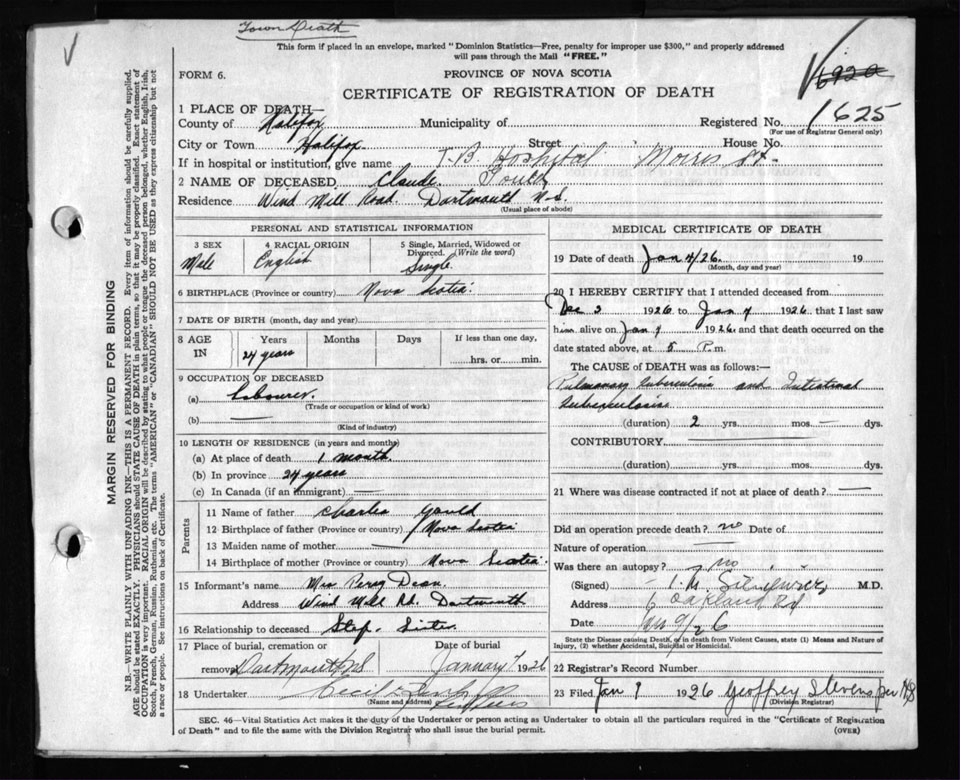 Town Death
This form if placed in an envelope, marked "Dominion Statistics—Free, penalty for improper use $300," and properly addressed
will pass through the Mail "FREE."
FORM 6.
PROVINCE OF NOVA SCOTIA
CERTIFICATE OF REGISTRATION OF DEATH
1625
1 PLACE OF DEATH—
County of Halifax Municipality of Registered No.
(For use of Registrar General only)
City or Town Halifax Street House No.
If in hospital or institution, give name T.B. Hospital Morris St.
2 NAME OF DECEASED Claude Gould
Residence Wind Mill Road. Dartmouth N.S.
(Usual place of abode)
PERSONAL AND STATISTICAL INFORMATION
3 SEX
Male
4 RACIAL ORIGIN
English
5 Single, Married, Widowed or
Divorced. (Write the word)
Single.
6 BIRTHPLACE (Province or country) Nova Scotia.
7 DATE OF BIRTH (month, day and year)
8 AGE
IN
Years
24 years
Months
Days
If less than one day,
hrs. or min.
9 OCCUPATION OF DECEASED
(a) Labourer.
(Trade or occupation or kind of work)
(b) —
(Kind of industry)
10 LENGTH OF RESIDENCE (in years and months)
(a) At place of death 1 month.
(b) In province 24 years
(c) In Canada (if an immigrant) —
Parents
11 Name of father Charles Gould
12 Birthplace of father (Province or country) Nova Scotia
13 Maiden name of mother —
14 Birthplace of mother (Province or country) Nova Scotia.
15 Informant's name Mrs Percy Dean.
Address Wind Mill Rd. Dartmouth
16 Relationship to deceased Step. Sister.
17 Place of burial, cremation or
removal Dartmouth NS
Date of burial
January 7 1926
18 Undertaker Cecil
(Name and address)
MEDICAL CERTIFICATE OF DEATH
19 Date of death Jan 4/26. 19
(Month, day and year)
20 I HEREBY CERTIFY that I attended deceased from
Dec 3 1926 to Jan 4 1926, that I last saw
him alive on Jan 1926 and that death occurred on
date stated above, at 5 P.m.
The CAUSE OF DEATH was as follows:—
Pulmonary tuberculosis and Intestinal
tuberculosis
(duration) 2 yrs. mos. — dys.
CONTRIBUTORY
(duration) yrs. mos. dys.
21 Where was disease contracted if not at place of death? —
Did an operation precede death? no Date of
Nature of operation —
Was there an autopsy? no
(Signed) M.D.
Address Oakland Rd
Date Jan 9/26
State the Disease causing Death, or in death from Violent Causes, state (1) Means and Nature of
Injury, (2) whether Accidental, Suicidal or Homicidal.
22 Registrar's Record Number
23 Filed Jan 9 1926 Geoffrey Stevens per
(Division Registrar)
SEC. 46—Vital Statistics Act makes it the duty of the Undertaker or person acting as Undertaker to obtain all the particulars required in the "Certificate of Registration
of Death" and to file the same with the Division Registrar who shall issue the burial permit.
(OVER)
MARGIN RESERVED FOR BINDING
N.B.—WRITE PLAINLY WITH UNFADING INK—THIS IS A PERMANENT RECORD. Every item of information should be carefully supplied.
AGE should be stated EXACTLY. PHYSICIANS should STATE CAUSE OF DEATH in plain terms, so that it may be properly classified. Exact statement of
OCCUPATION is very important. RACIAL ORIGIN will be described by stating to what people or tongue the deceased person belonged, whether English, Irish,
Scotch, French, German, Russian, Ruthenian, etc. The terms "AMERICAN" or "CANADIAN" SHOULD NOT BE USED as they express citizenship but not
a race or people. See instructions on back of Certificate.